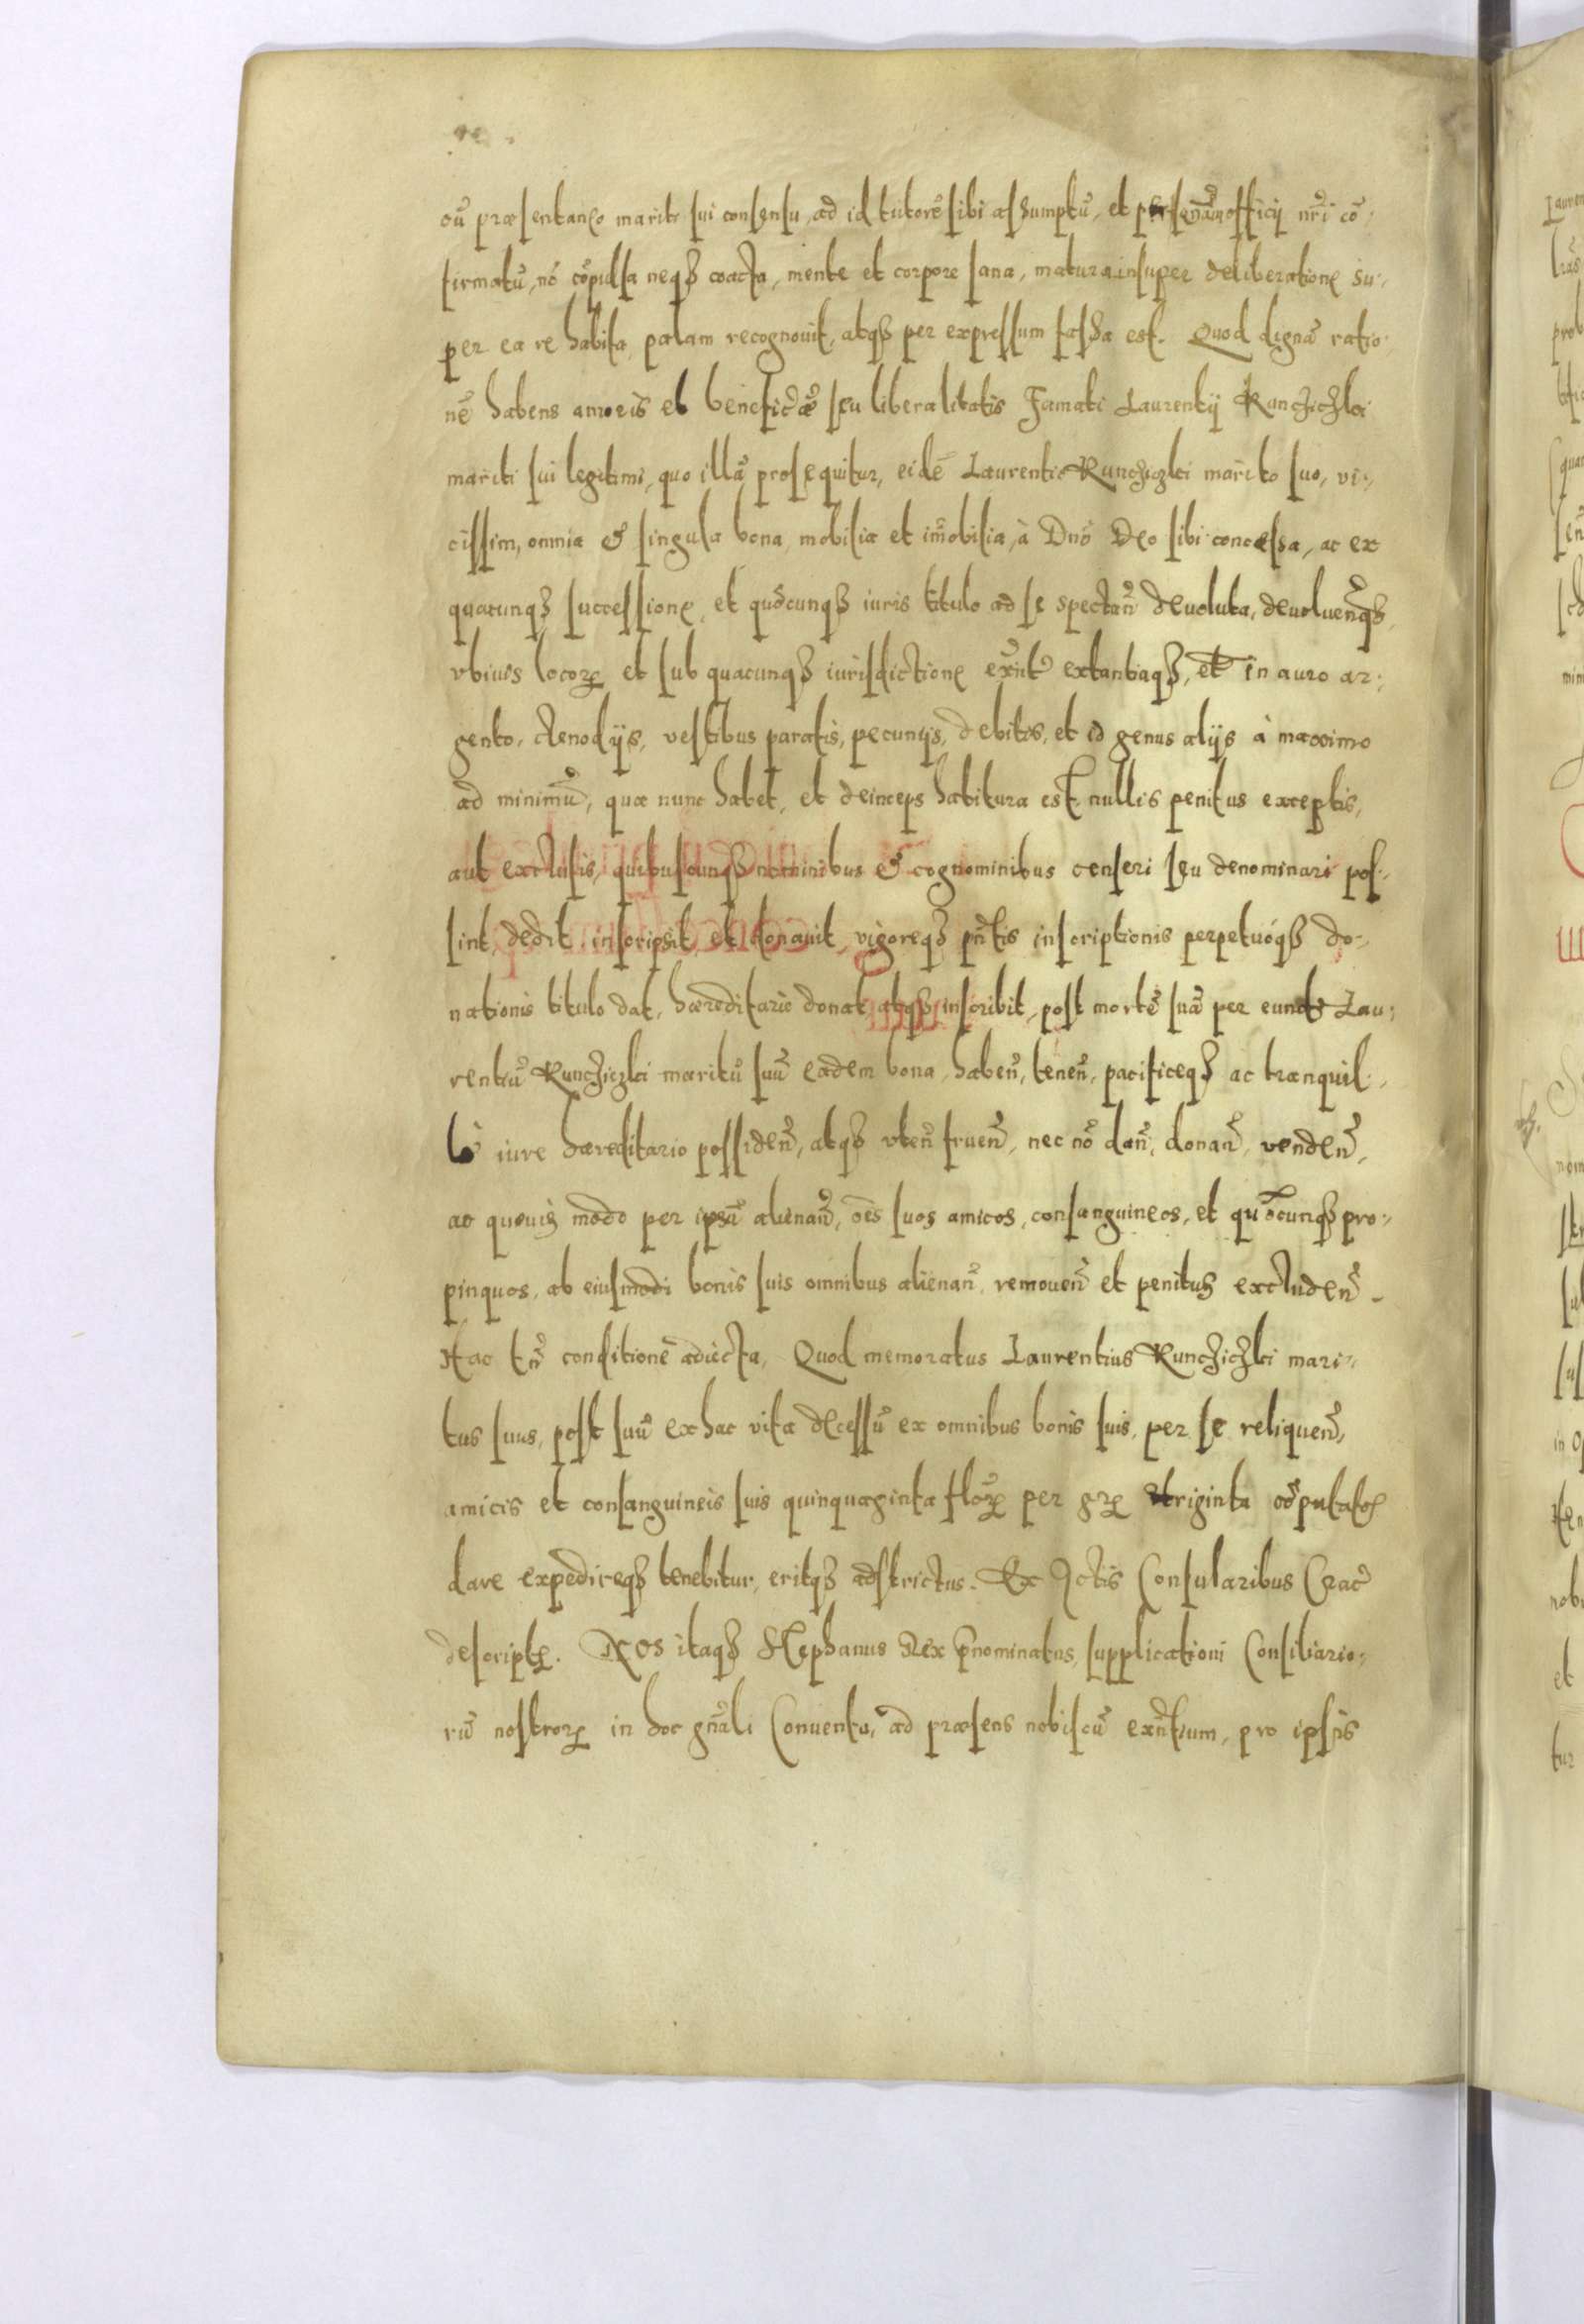 cū præsentaneo mariti sui consensu, ad id tutorē sibi assumptū, et officij nr̄i cō-
firmatū, nō cōpulsa neqꝫ coacta, mente et corpore sana, matura insuper deliberatione su-
per ea re habita, palam recognouit, atqꝫ per expressum fassa est. Quod dignā ratio-
nē habens amoris et seu liberalitatis Famati Laurentij Runczichzki
mariti sui legitimi, quo illā prosequitur, eidē Laurentio Runczichzki marito suo, vi-
cissim, omnia & singula bona, mobilia et im̄obilia, à Dnō Deo sibi concessa, ac ex
quacunqꝫ successione, et quōcunqꝫ iuris titulo ad se spectan̄ deuoluta, deuoluen̄qꝫ,
vbiuis locoꝝ et sub quacunqꝫ iurisdictione extantiaqꝫ, et in auro ar-
gento, clenodijs, vestibus paratis, pecunijs, debitis, et id genus alijs à maximo
ad minimū, quæ nunc habet, et deinceps habitura est, nullis penitus exceptis,
aut exclusis, quibuscunqꝫ nominibus & cognominibus censeri seu denominari pos-
sint, dedit, inscripsit, et donauit, vigoreqꝫ pn̄tis inscriptionis perpetuóqꝫ do-
nationis titulo dat, hæreditariè donat, atqꝫ inscribit, post mortē suā per eundē Lau-
rentiū Runczichzki maritū suū eadem bona, haben̄, tenen̄, pacificeqꝫ ac tranquil-
lè iure hæreditario possiden̄, atqꝫ vten̄ fruen̄, nec nō dan̄, donan̄, venden̄,
ac quouis modo per ipsū alienan̄, oēs suos amicos, consanguineos, et quōscunqꝫ pro-
pinquos, ab eiusmodi bonis suis omnibus alienan̄, remouen̄ et penitus excluden̄.
Hac tn̄ conditione adiecta, Quod memoratus Laurentius Runczichzki mari-
tus suus, post suū ex hac vita decessū ex omnibus bonis suis, per se reliquen̄,
amicis et consanguineis suis quinquaginta floꝝ per gꝝ triginta cōputatos
dare expedireqꝫ tenebitur, eritqꝫ adstrictus. Ex Actis Consularibus Crac̄
descriptꝭ. NOS itaqꝫ Stephanus Rex p̄nominatus, supplicationi Consiliario-
rū nostroꝝ in hoc gn̄ali Conuentu, ad præsens nobiscū exn̄tium, pro ipsis